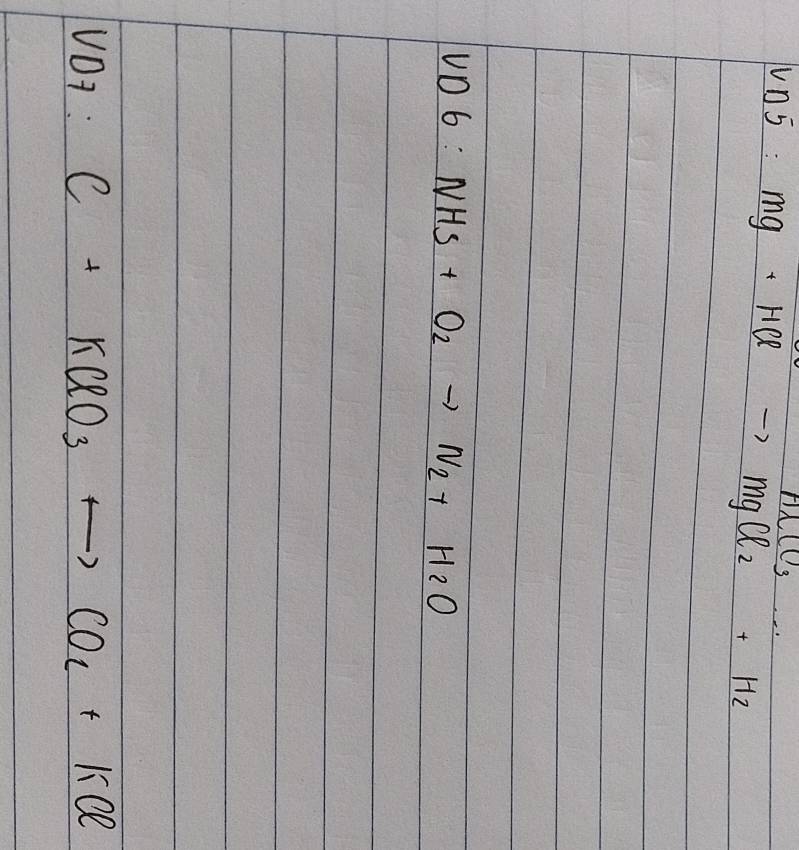 VD5 : mg + HCl → mgCl₂ + H₂
VD6 : NH3 + O₂ → N₂ + H₂O
VD7 : C + KClO₃ ⟶ CO₂ + KCl